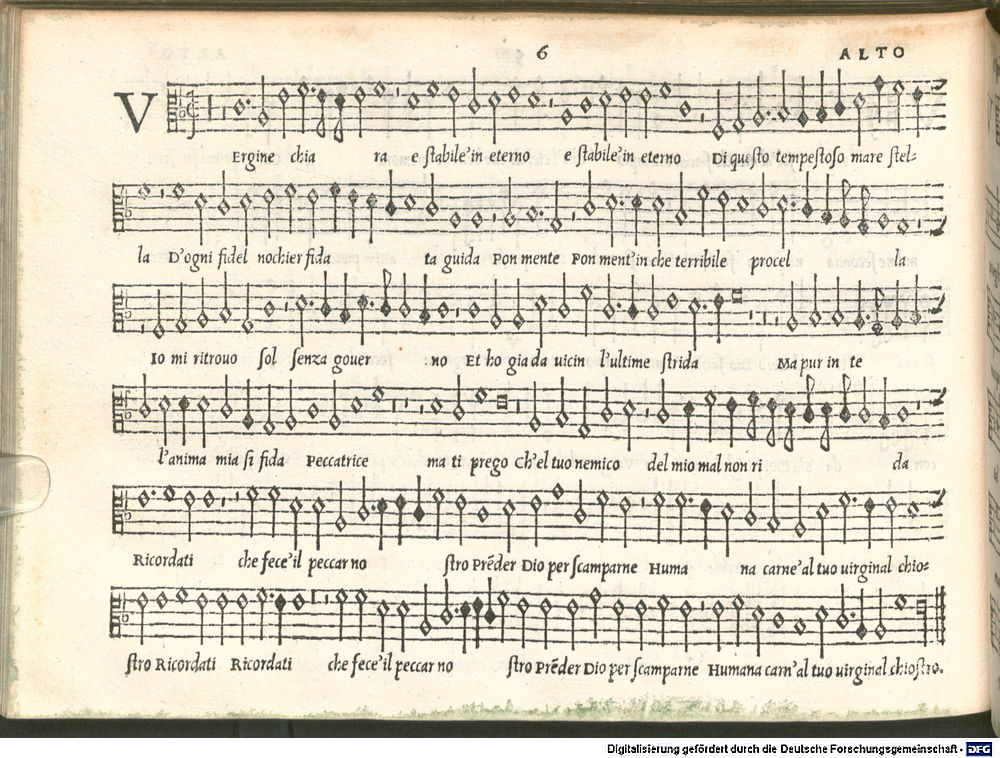 6 ALTO
V
Ergine chia ra e stabile'in eterno e stabile'in eterno Di questo tempestoso mare stel-
la D'ogni fidel nochier fida ta guida Pon mente Pon ment'in che terribile procel la
Io mi ritrouo sol senza gouer no Et ho gia da uicin l'ultime strida Ma pur in te
l'anima mia si fida Peccatrice ma ti prego Ch'el tuo nemico del mio mal non ri da
Ricordati che fece'il peccar no stro Prẽder Dio per scamparne Huma na carne'al tuo uirginal chio-
stro Ricordati Ricordati che fece'il peccar no stro Prẽder Dio per scamparne Humana carn'al tuo uirginal chiostro.
Digitalisierung gefördert durch die Deutsche Forschungsgemeinschaft - DFG